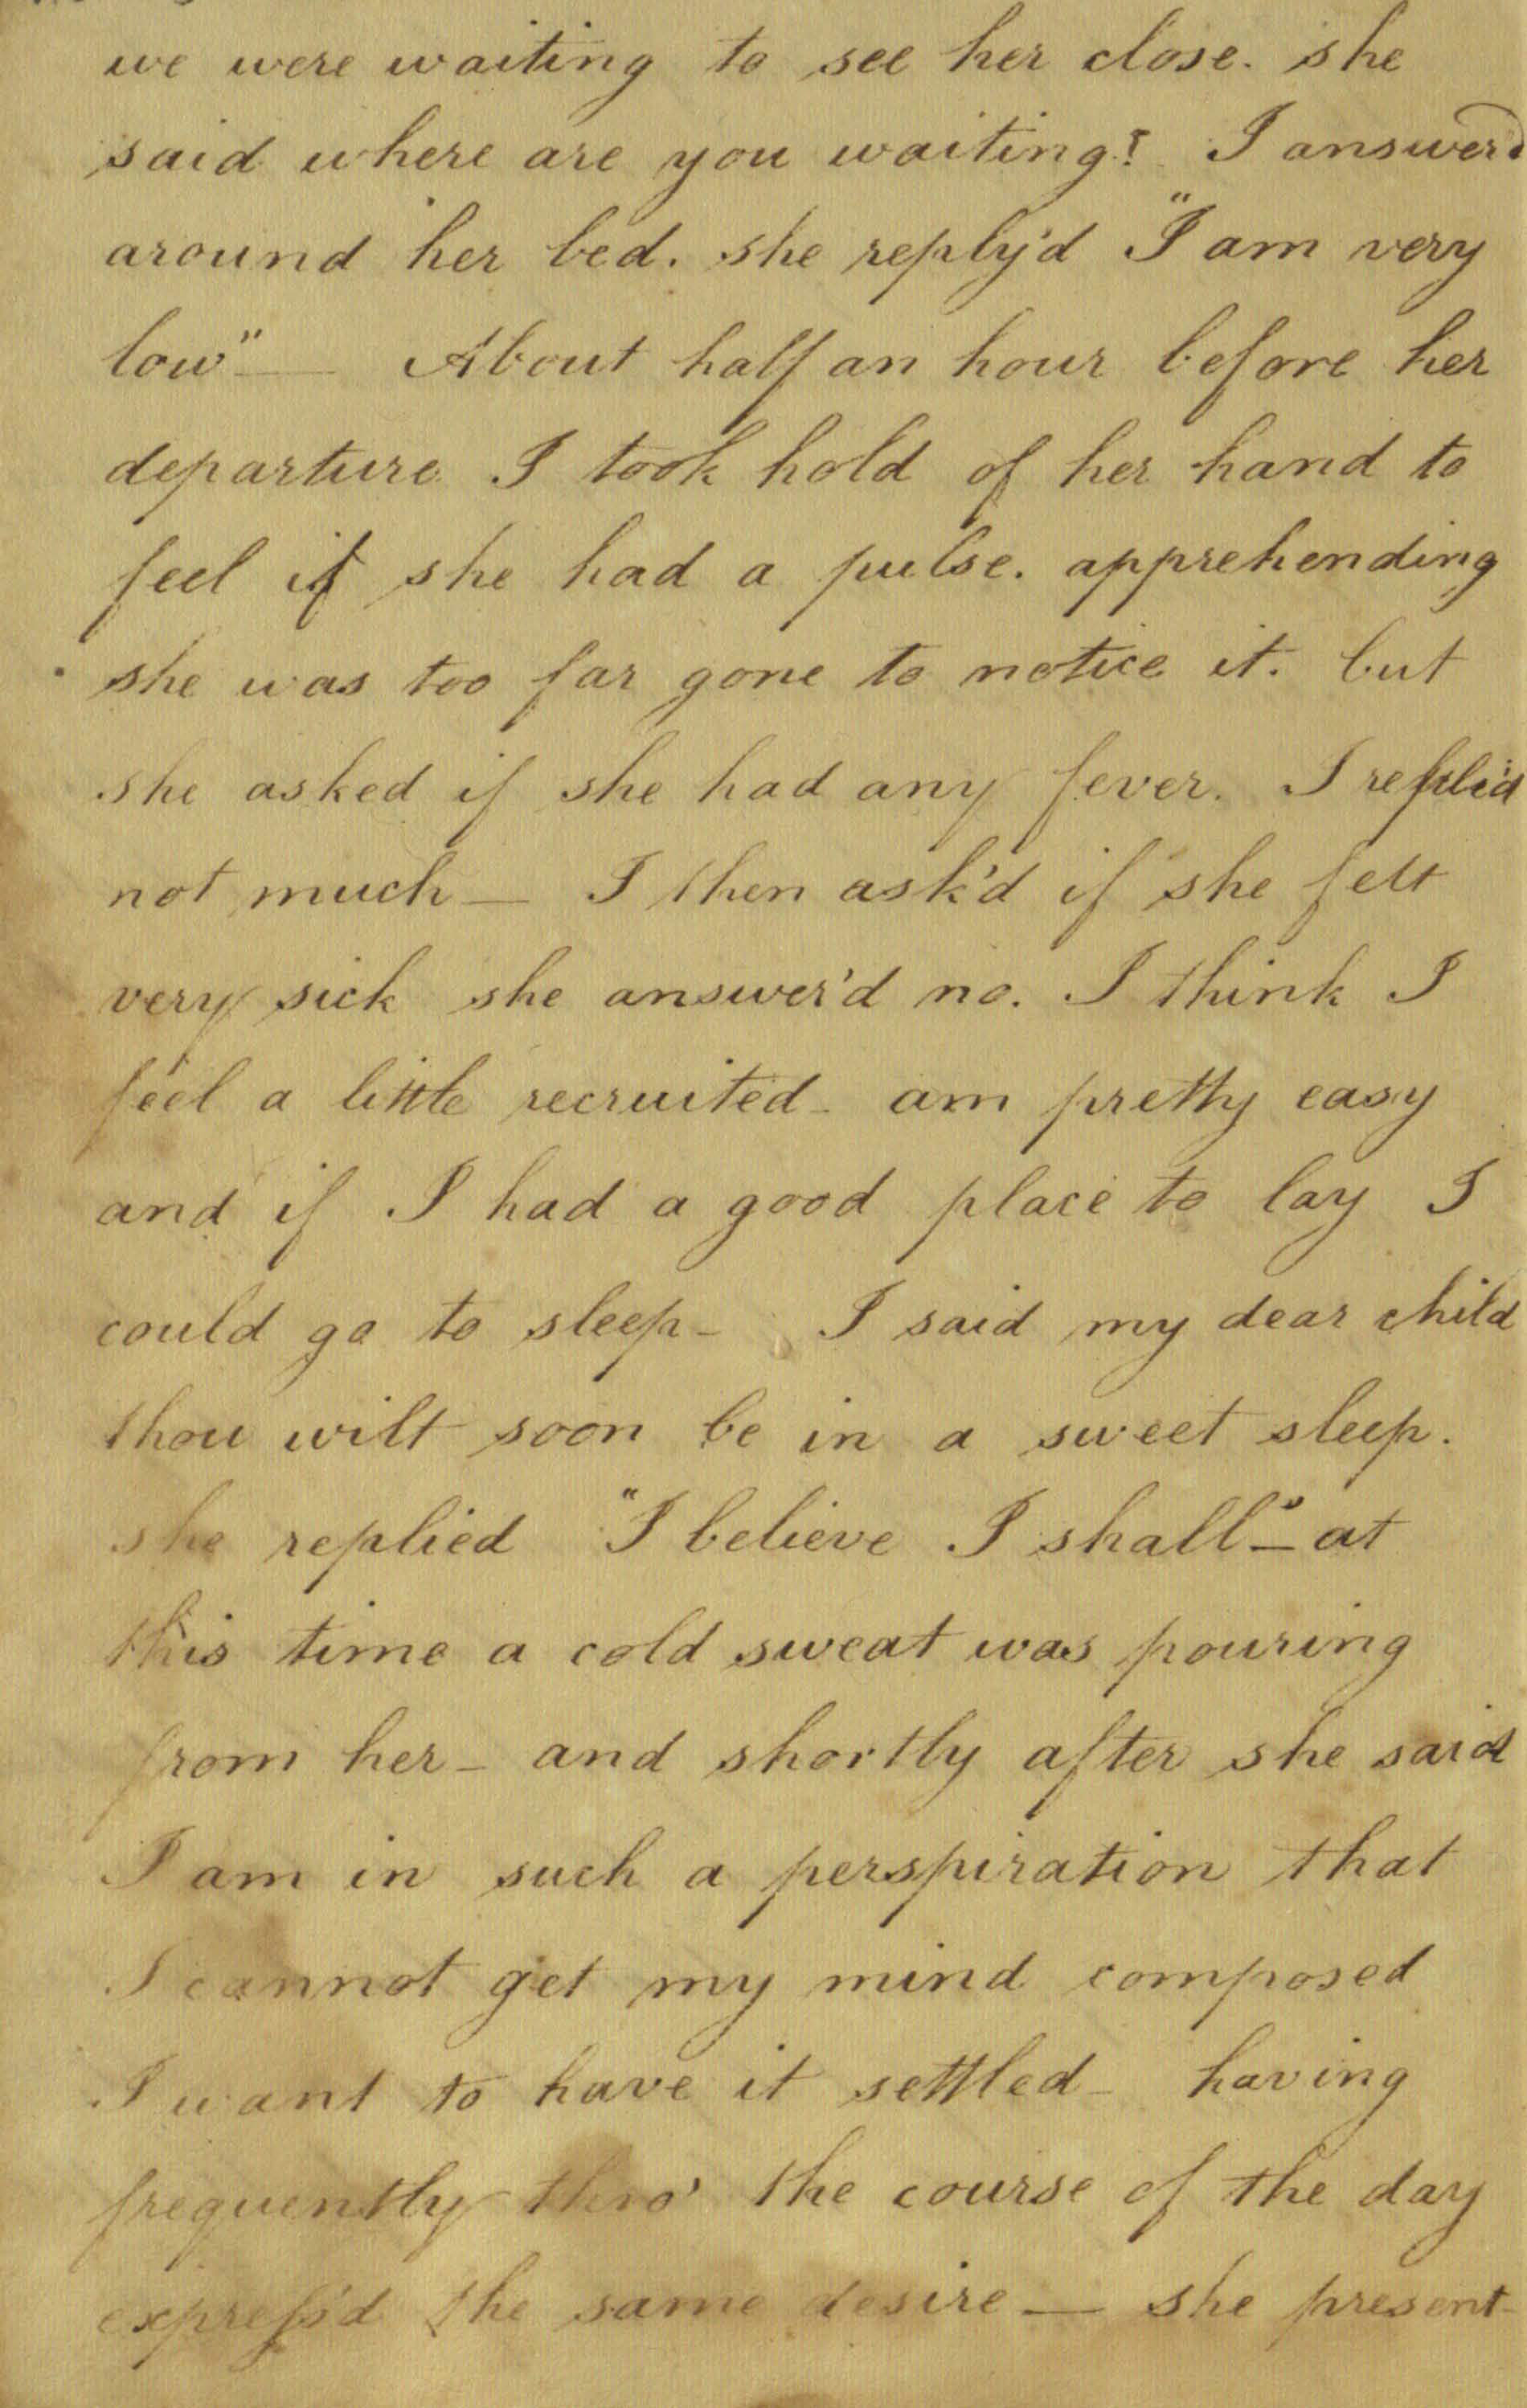 we were waiting to see her close. she
said where are you waiting? I answer'd
around her bed. she reply'd "I am very
low" — About half an hour before her
departure I took hold of her hand to
feel if she had a pulse. apprehending
she was too far gone to notice it. but
she asked if she had any fever. I repli'd
not much — I then ask'd if she felt
very sick she answer'd no. I think I
feel a little recruited - am pretty easy
and if I had a good place to lay I
could go to sleep - I said my dear child
thou wilt soon be in a sweet sleep.
she replied "I believe I shall" - at
this time a cold sweat was pouring
from her - and shortly after she said
I am in such a perspiration that
I cannot get my mind composed
I want to have it settled - having
frequently thro' the course of the day
expreſs'd the same desire — she present-